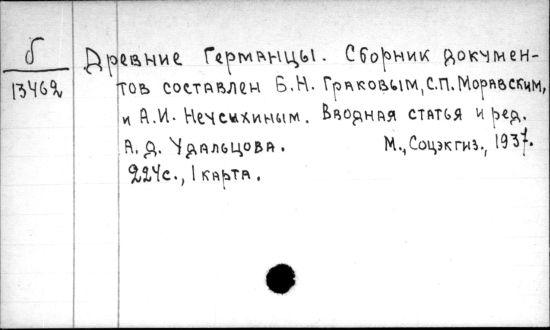 б
13462
Древние Германцы. Сборник докумен-
тов составлен Б.Н. Граковым, С.П. Моравским,
и А.И. Неусыхиным. Вводная статья и ред.
А.Д. Удальцова. М., Соцэкгиз., 1937.
224с., 1 карта.